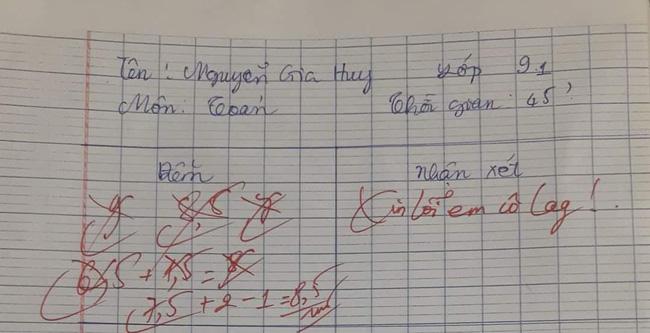 Tên: Nguyễn Gia Huy Lớp 9.1
Môn: Toán Thời gian: 45'
Điểm nhận xét
9 8,5 7
Xin lỗi em cô lag!.
6,5 + 1,5 = 8
7,5 + 2 - 1 = 8,5